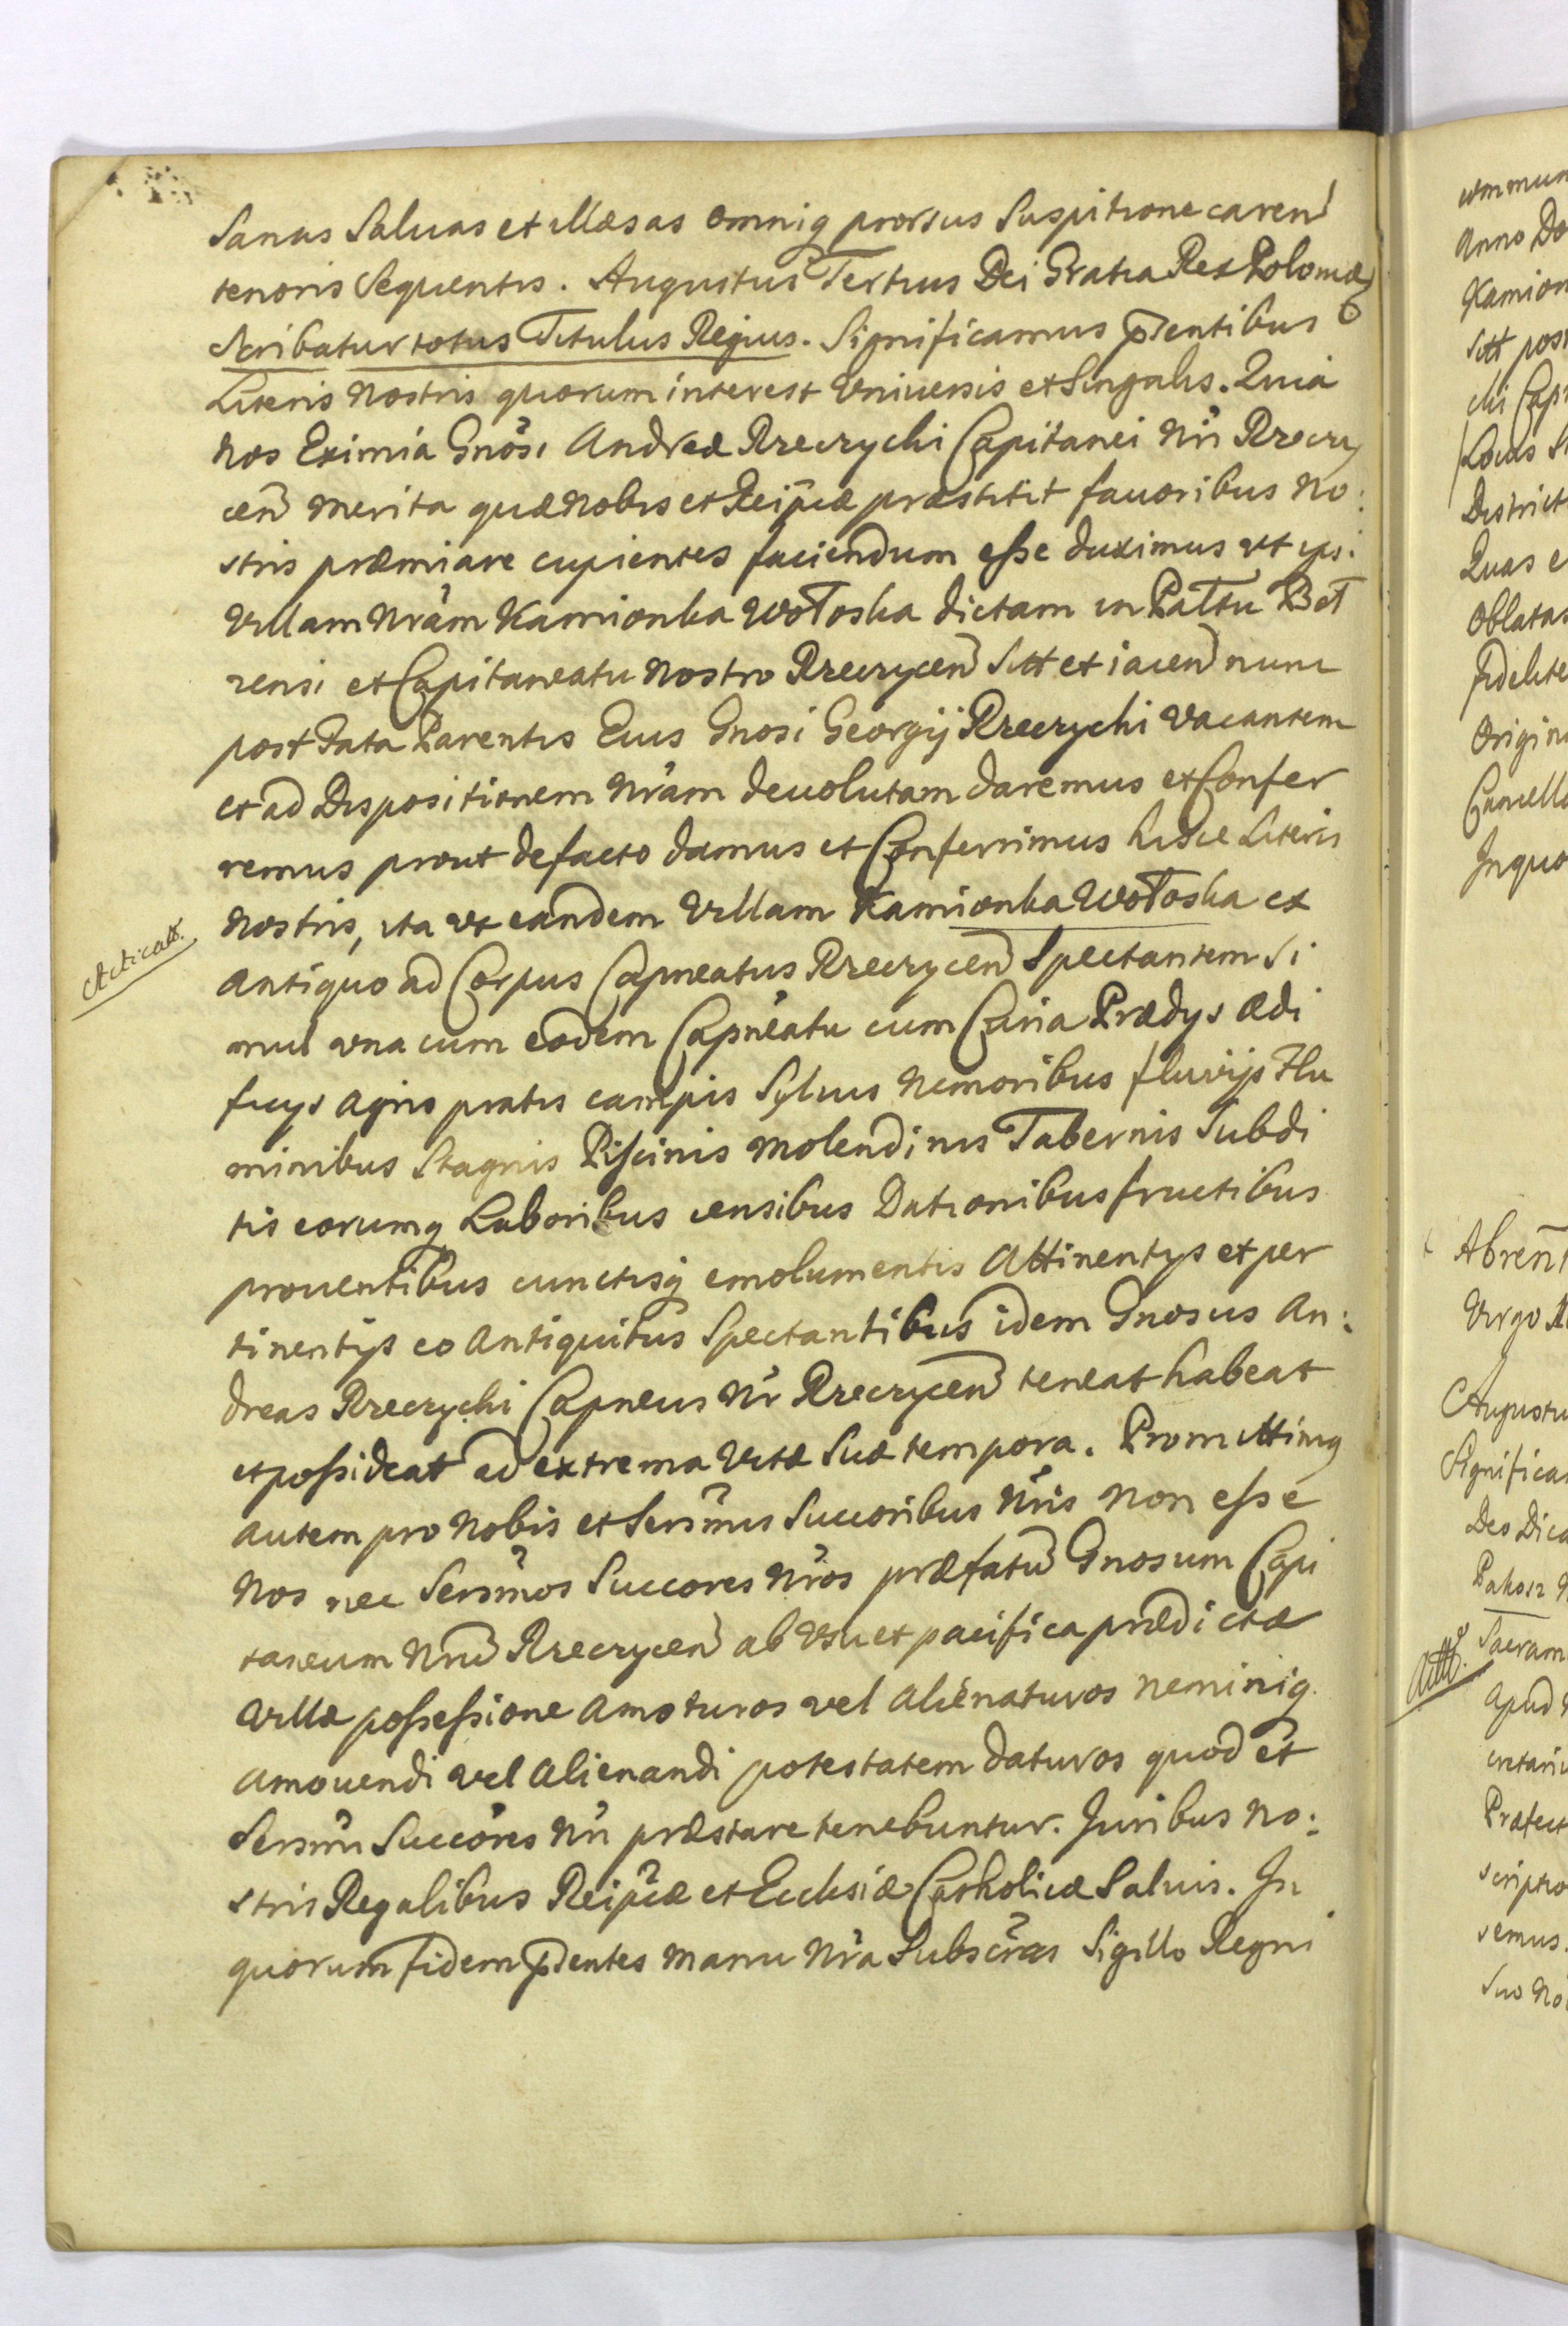 Sanas Saluas et illæsas omniq prorsus Suspitione caren̄
tenoris Sequentis. Augustus Tertius Dei Gratia Rex Poloniæ
Scribatur totus Titulus Regius. Significamus p̄ntibus
Literis Nostris quorum interest Vniuersis et Singulis. Quia
Nos Eximia Gnōsi Andreæ Rzeczychi Capitanei Nr̄i Rzeczy
cen̄ Merita quæ Nobis et Reip̄cæ præstitit fauoribus No:
stris præmiare cupientes faciendum eſse duximus vt ipsi
Villam Nr̄am Kamionka Wołoska dictam in Pałtu Beł
zensi et Capitaneatu Nostro Rzeczycen̄ Sitt et iacen̄ nunc
post Fata Parentis Eius Gnosi Georgij Rzeczychi Vacantem
et ad Dispositionem Nr̄am deuolutam daremus et Confer
remus prout de facto damus et Conferrimus hisce Literis
Nostris, ita vt eandem Villam Kamionka Wołoska ex
Antiquo ad Corpus Capneatus Rzeczycen̄ Spectantem Si
mul vna cum eodem Capn̄eatu cum Curia Prædys Ædi
ficys Agris pratis campis Syluis Nemoribus fluvijs Flu
minibus Stagnis Piſcinis Molendinis Tabernis Subdi
tis eorumq Laboribus censibus Dationibus fructibus
prouentibus cunctisq emolumentis Attinentys et per
tinentijs eo Antiquitus Spectantibus idem Gnosus An:
dreas Rzeczychi Capneus Nr̄ Rzeczycen̄ teneat habeat
et poſsideat ad extrema Vitæ Suæ tempora. Promittimq
Autem pro Nobis et Sersm̄is Succoribus Nr̄is Non eſse
Nos nec Sersm̄os Succores Nr̄os præfatū Gnosum Capi
taneum Nrū Rzeczycen̄ ab Vsu et pacifica prædictæ
Villæ poſseſsione Amoturos vel Alienaturos Neminiq
Amouendi vel Alienandi potestatem daturos quod et̄
Sersm̄i Succōres Nr̄i præstare tenebuntur. Juribus No:
stris Regalibus Reip̄cæ et Ecclesiæ Catholicæ Saluis. In
quorum fidem p̄ntes Manu Nr̄a Subscr̄as Sigillo Regni
Acticatt.
Anno Do
Kamion
Sitt post
chi Capi
Locus S
District
Quas e
Oblatas
fidelite
Origin
Cancella
In quo
Abren̄
Virgo
Augustu
Significa
Deo Dica
Pakosz
Sacram
Apud
Præfect
scriptio
semus.
Suo No